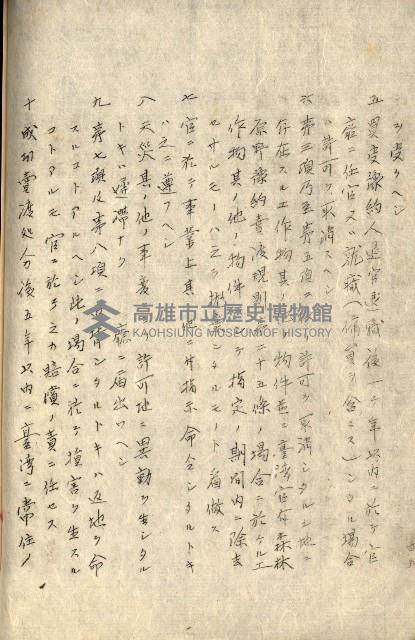 ヲ受クヘシ
五 買受豫約人退官退職後一ケ年以內ニ於テ官
廳ニ任官又ハ就職(傭員ヲ含ム)シタル場合
ハ許可ヲ取消スヘシ
六 第三項乃至第五項ニ 許可ヲ取消シタル土地ニ
存在スル工作物其ノ 物件並ニ臺灣官有森林
原野豫約賣渡規則 二十五條ノ場合ニ於ケル工
作物其ノ他ノ物件 指定ノ期間內ニ除去
セサルモノハ之ヲ拋棄シタルモノト看做ス
七 官ニ於テ事業上其ノ他ニ付指示命令シタルトキ
ハ之ニ遵フヘシ
八 天災其ノ他ノ事變 許可地ニ異動ヲ生シタル
トキハ遲滯ナク 廳ニ屆出ツヘシ
九 第七項及第八項ニ 背シタルトキハ返地ヲ命
スルコトアルヘシ此ノ場合ニ於テ損害ヲ生スル
コトアルモ官ニ於テ之カ賠償ノ責ニ任セス
十 成功賣渡処分後五年以內ニ臺灣ニ常住ノ
高雄市立歷史博物館
KAOHSIUNG MUSEUM OF HISTORY